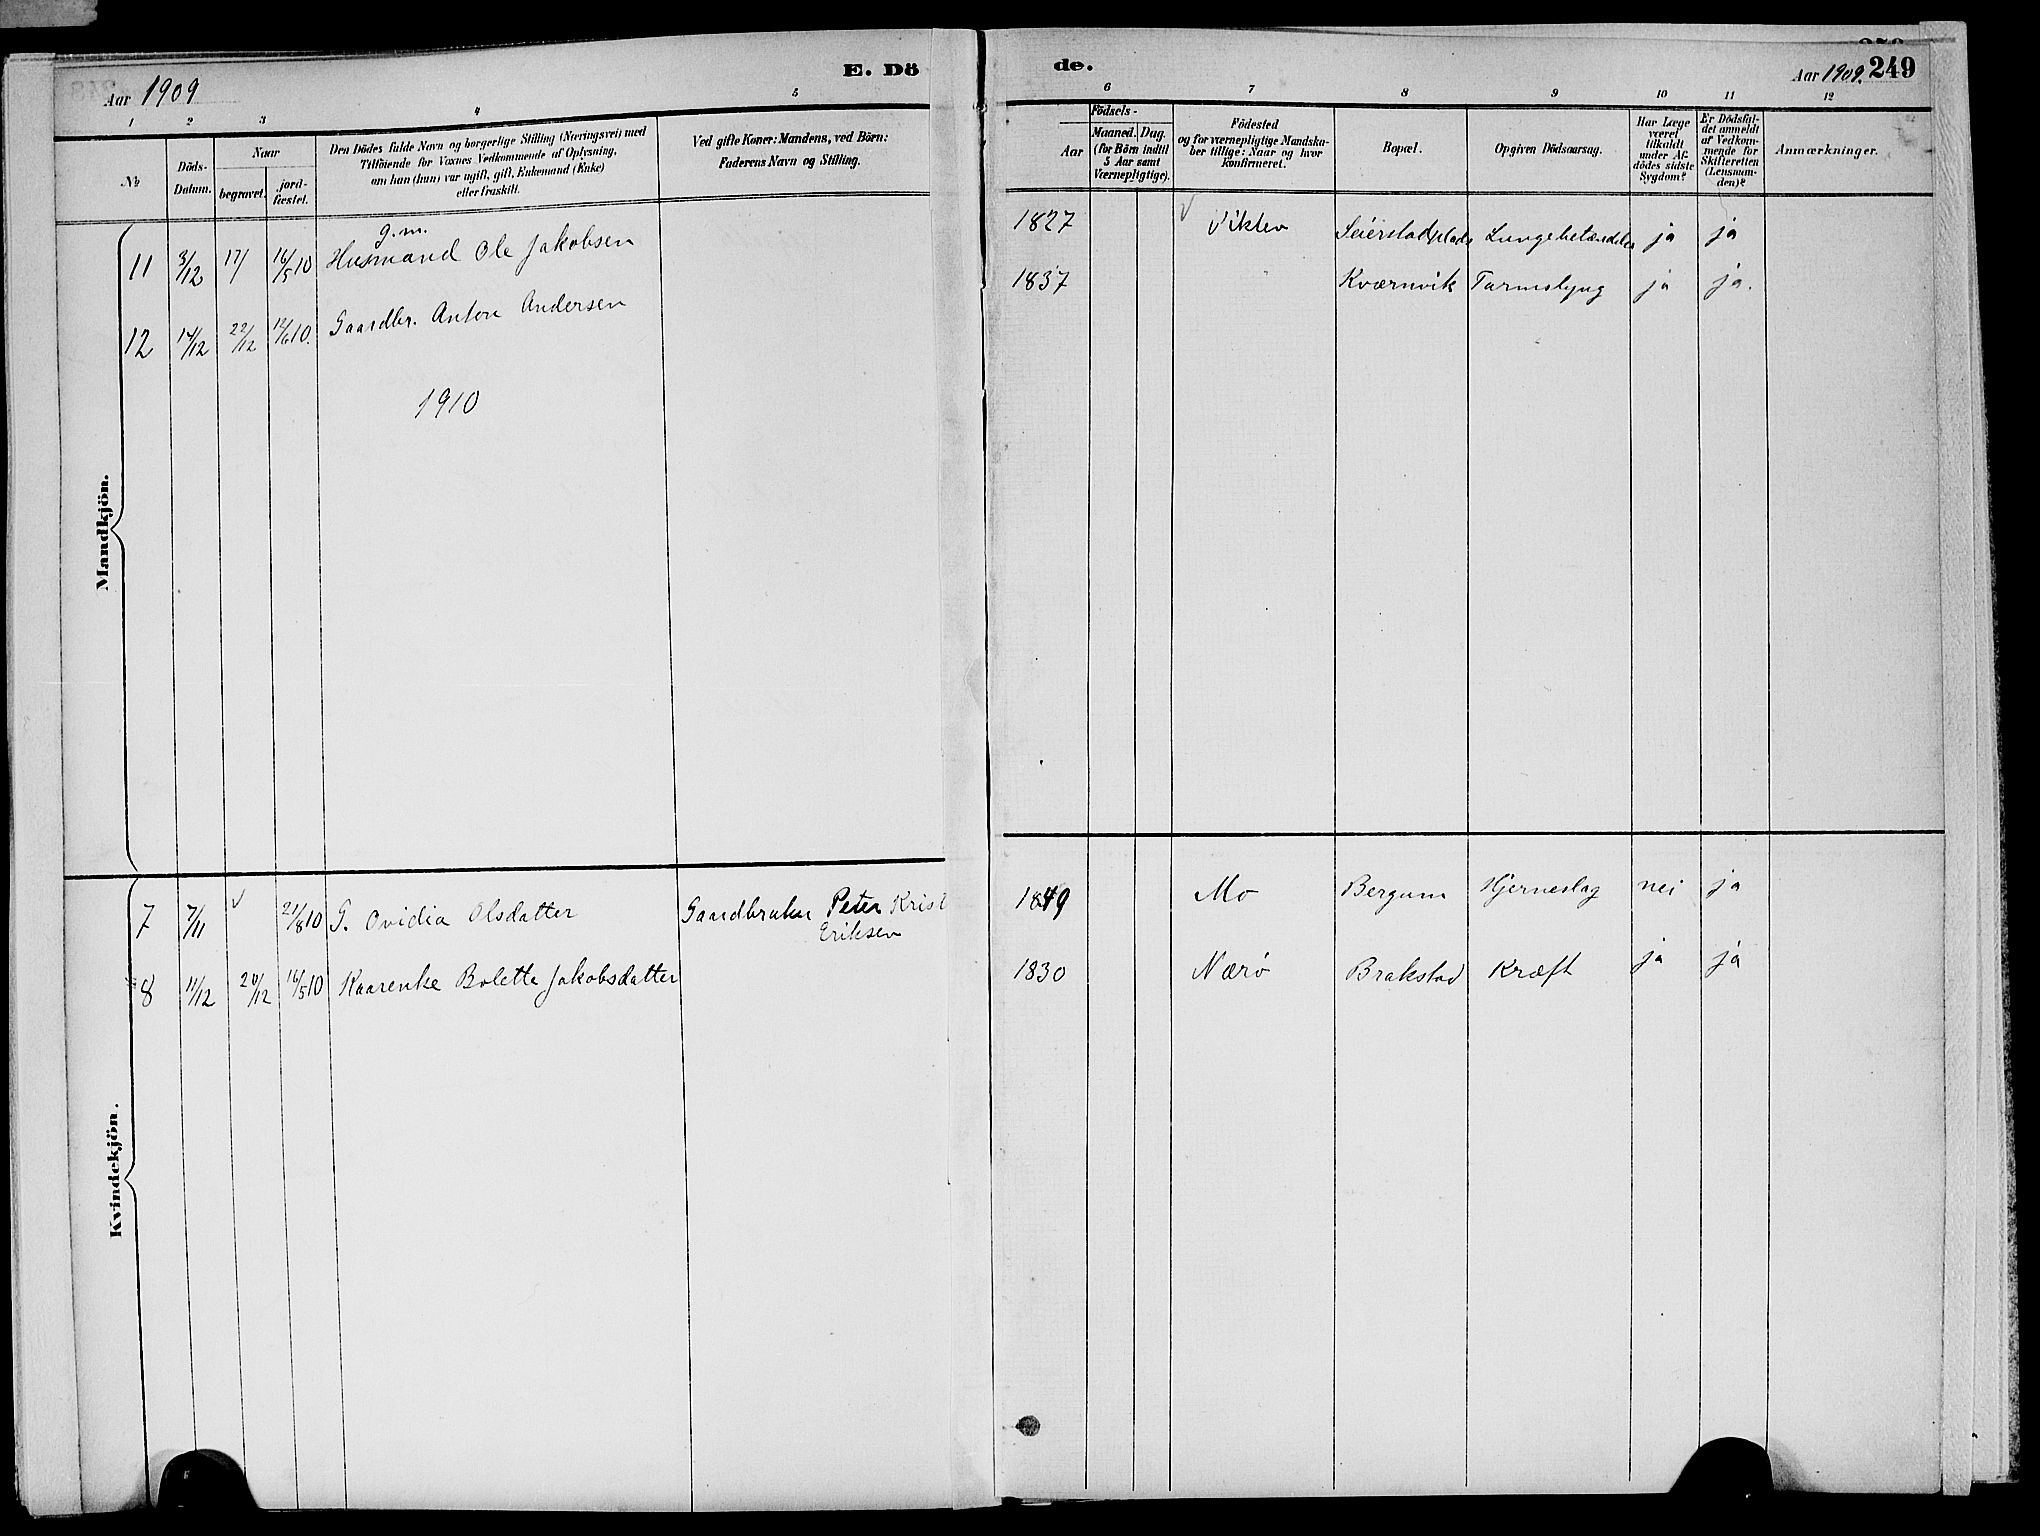 Aar 1909
E. Dö
1 2 3 4 5
No
Döds-
Datum.
Naar
begravet.
jord-
fæstet.
Den Dödes fulde Navn og borgerlige Stilling (Næringsvei) med
Tilföiende for Voxnes Vedkommende af Oplysning,
om han (hun) var ugift, gift, Enkemand (Enke)
eller fraskilt.
Ved gifte Koner: Mandens, ved Börn:
Faderens Navn og Stilling.
Mandkjön.
g.m.
11 3/12 17/ 16/5 10 Husmand Ole Jakobsen
12 17/12 22/12 12/6 10. Gaardbr. Anton Andersen
1910
Kvindekjön.
7 7/11 21/8 10 G. Ovidia Olsdatter Gaardbruker Peter Krist
Eriksen
8 11/12 20/12 16/5 10 Kaarenke Bolette Jakobsdatter
de.
Aar 1909. 249
6 7 8 9 10 11 12
Födsels-
Aar
Maaned. Dag.
(for Börn indtil
5 Aar samt
Værnepligtige).
Födested
og for værnepligtige Mandska-
ber tillige: Naar og hvor
konfirmeret.
Bopæl.
Opgiven Dödsaarsag.
Har Læge
været
tilkaldt
under Af-
dödes sidste
Sygdom?
Er Dödsfal-
det anmeldt
af Vedkom-
mende for
Skifteretten
(Lensman-
den)?
Anmærkninger.
1827 Vikten Seierstadplads Lungebetændelse ja ja
1837 " Kværnvik Tarmslyng ja ja.
1849 Mo Bergum Hjerneslag nei ja
1830 Nærö Brakstad Kræft ja ja